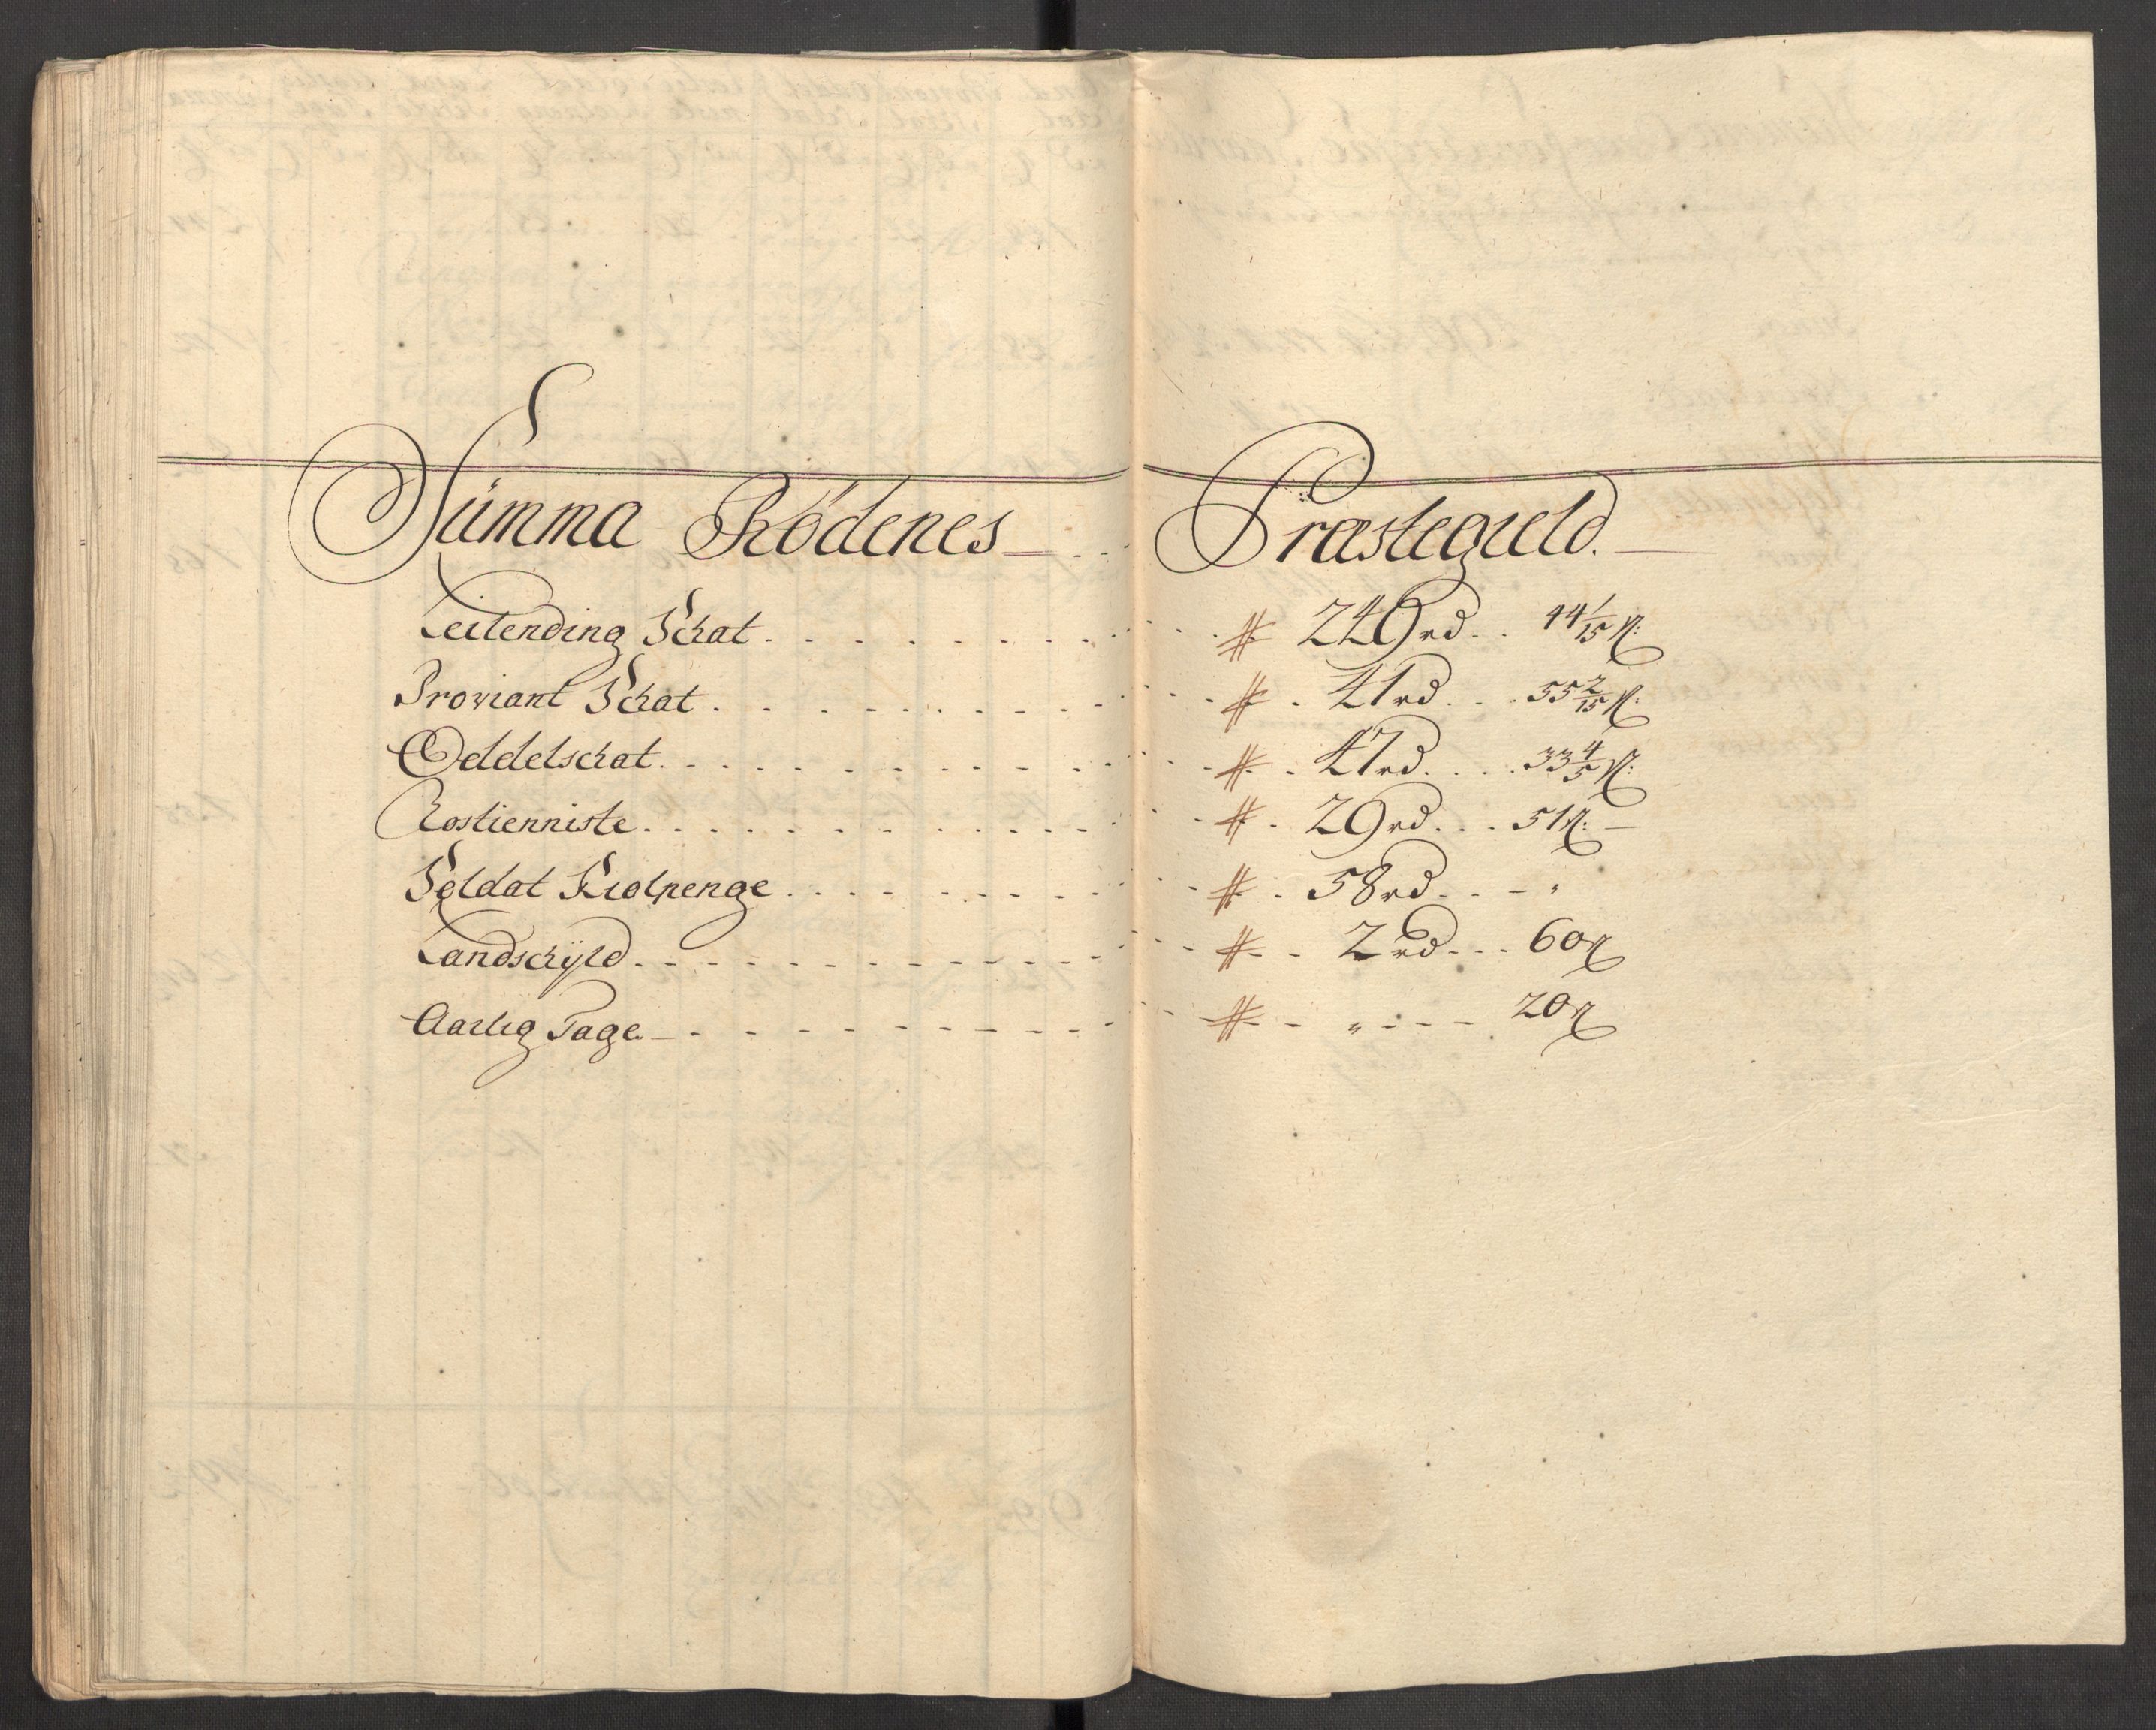 Summa Rödenes Præstegield.
Leilending Schat # 249 rd 44 1/15 ß:
Proviant Schat # 41 rd 55 2/15 ß:
Oddelschat # 47 rd 33 4/5 ß:
Rostienniste # 29 rd 51 ß:
Soldat Holpenge # 58 rd
Landschÿld # 2 rd 60 ß
Aarlig Tage # " 20 ß